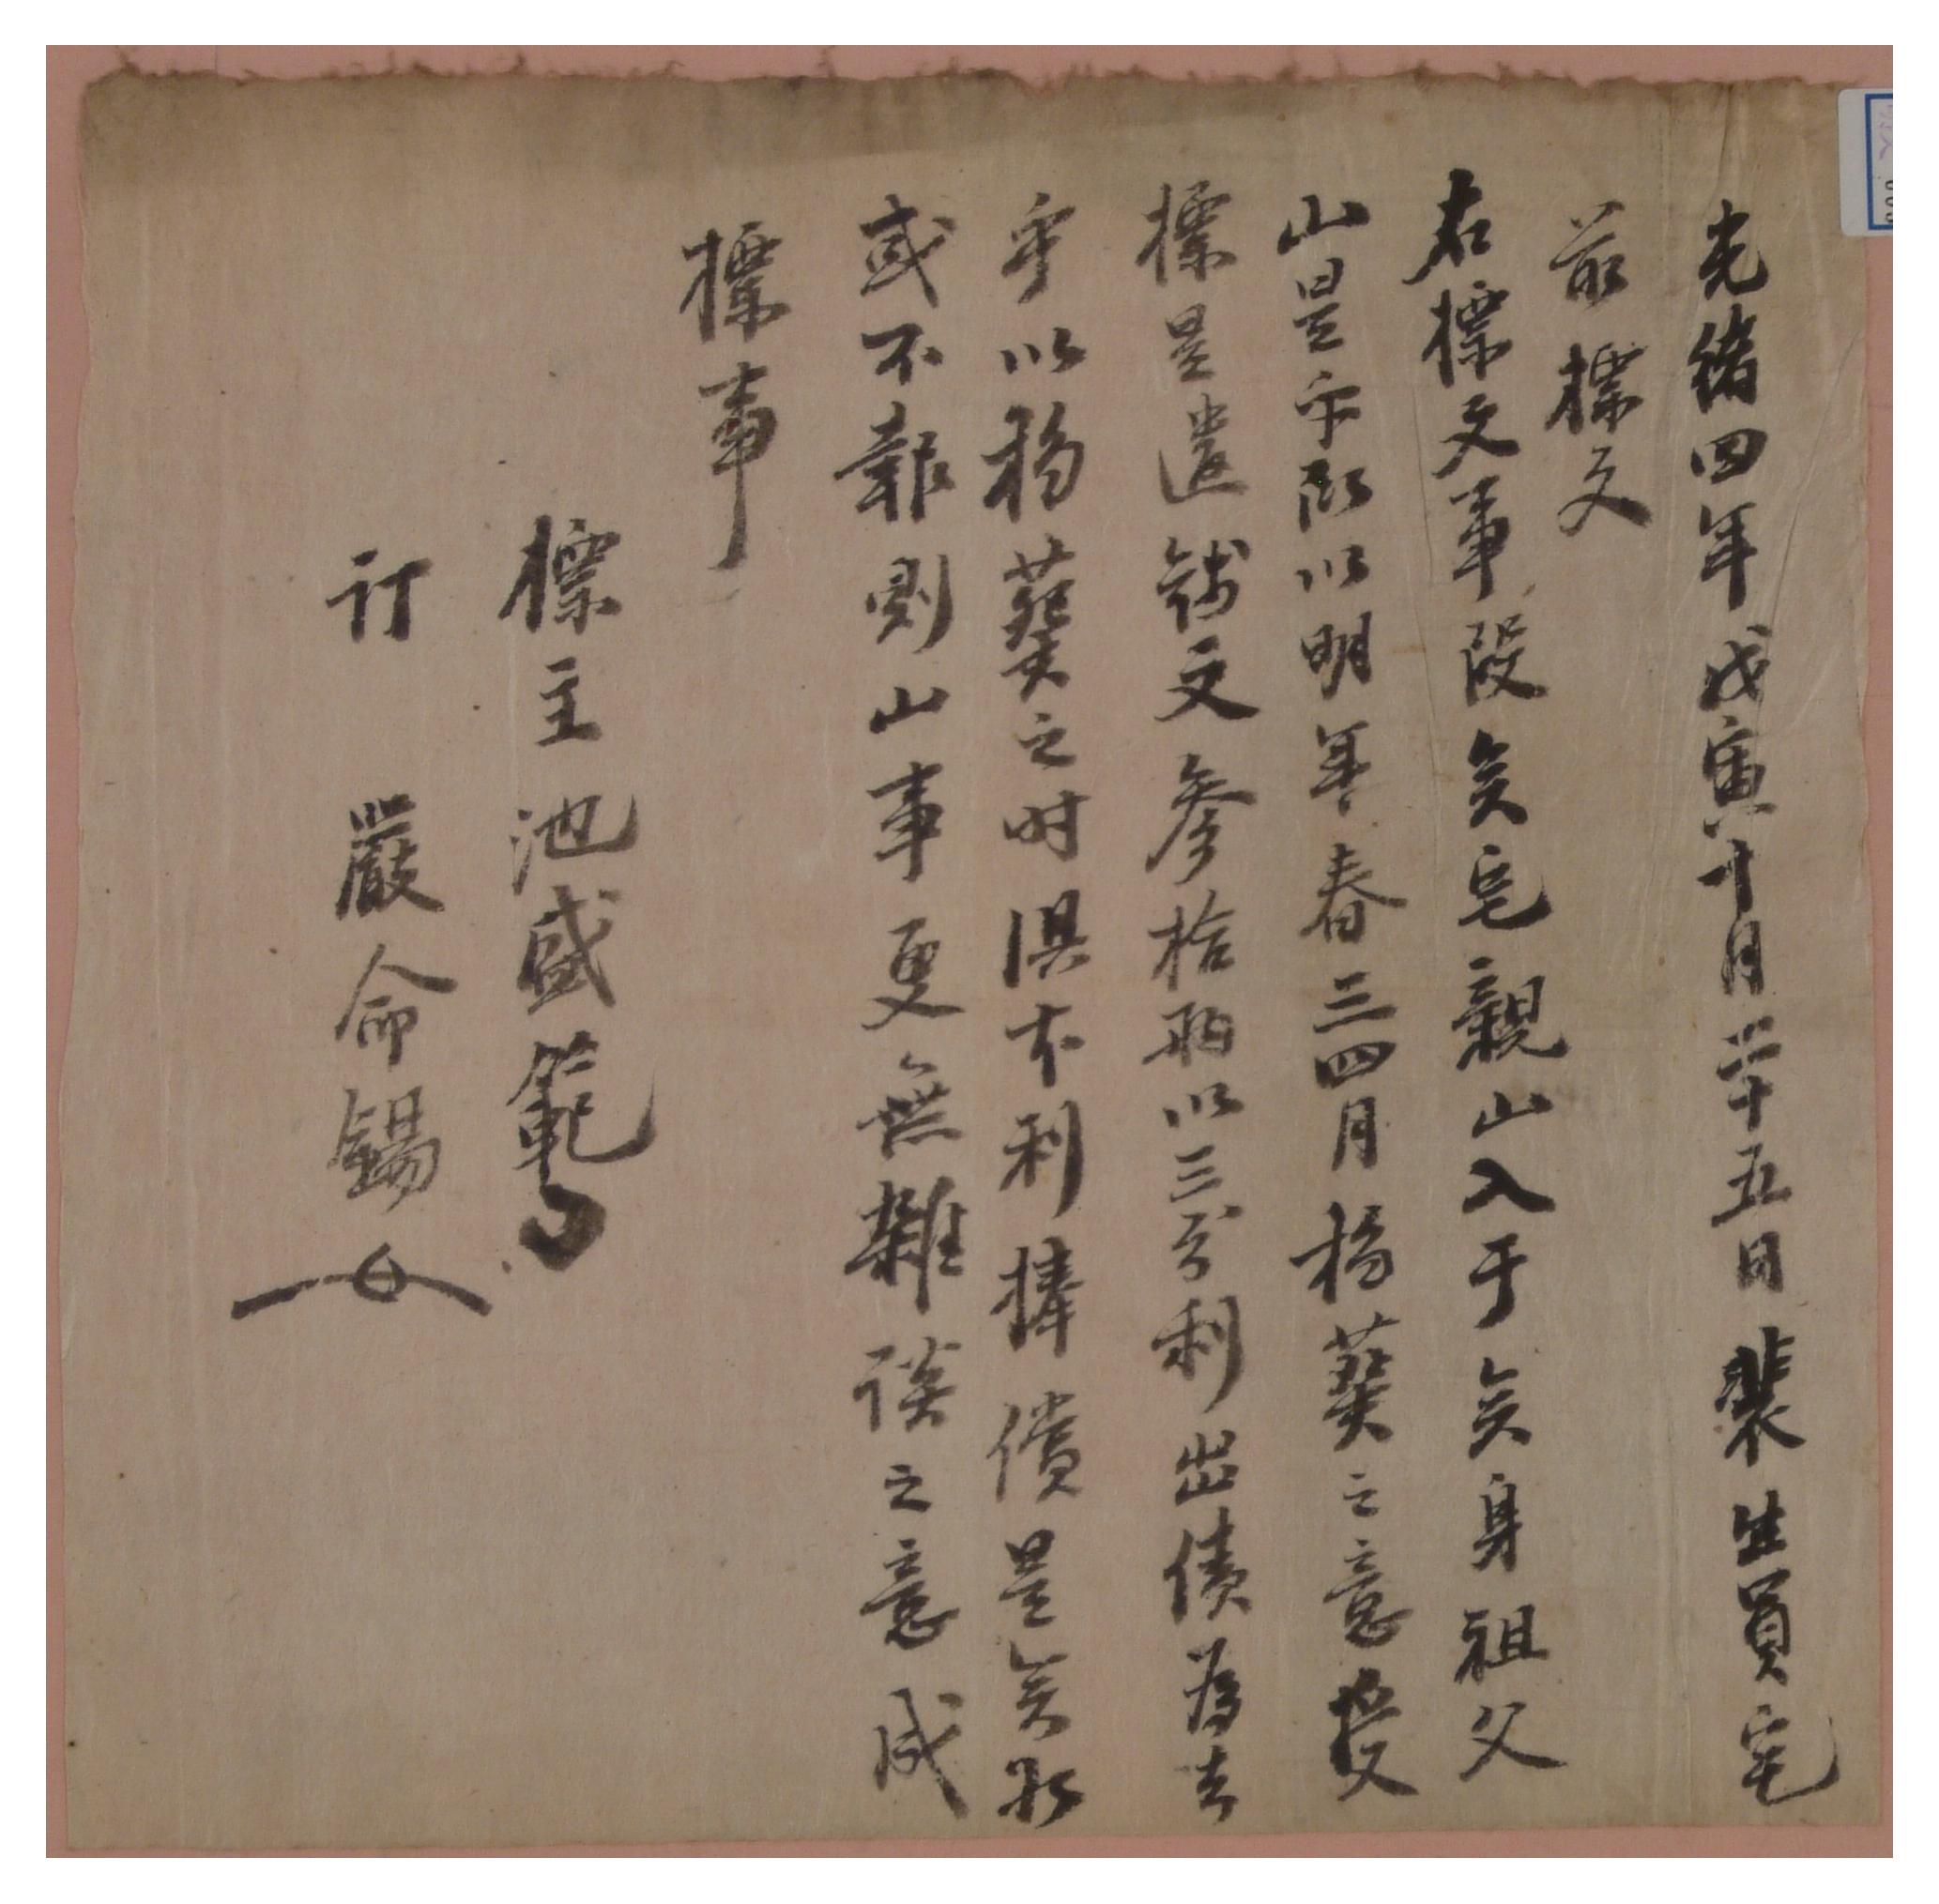 光緖四年戊寅十月二十五日裴生員宅
前標文
右標文事段矣宅親山入于矣身祖父
山是乎所以明年春三四月移葬之意授
標是遣錢文參拾兩以三分利出債爲去
乎以移葬之時俱本利捧償是矣如
或不報則山事更無雜談之意成
標事
標主池盛範
訂 嚴命錫